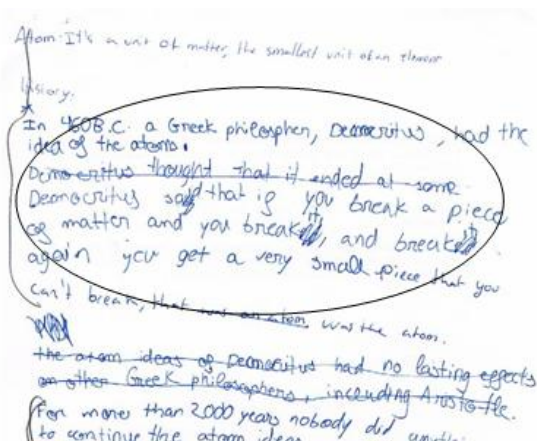 Atom: It's a unit of matter, the smallest unit of an element
History:
In 460B.C. a Greek philospher, Deomcritus, had the
idea of the atoms.
Democritus thought that it ended at some
Deomocritus said that if you break a piece
of matter and you break it, and break it
again you get a very small piece that you
can't break, that was an atom was the atom.
the atom ideas of Deomocritus had no lasting effects
on other Greek philosophers, inceuding Aristotle.
For more than 2000 years nobody did anything
to continue the atom ideas